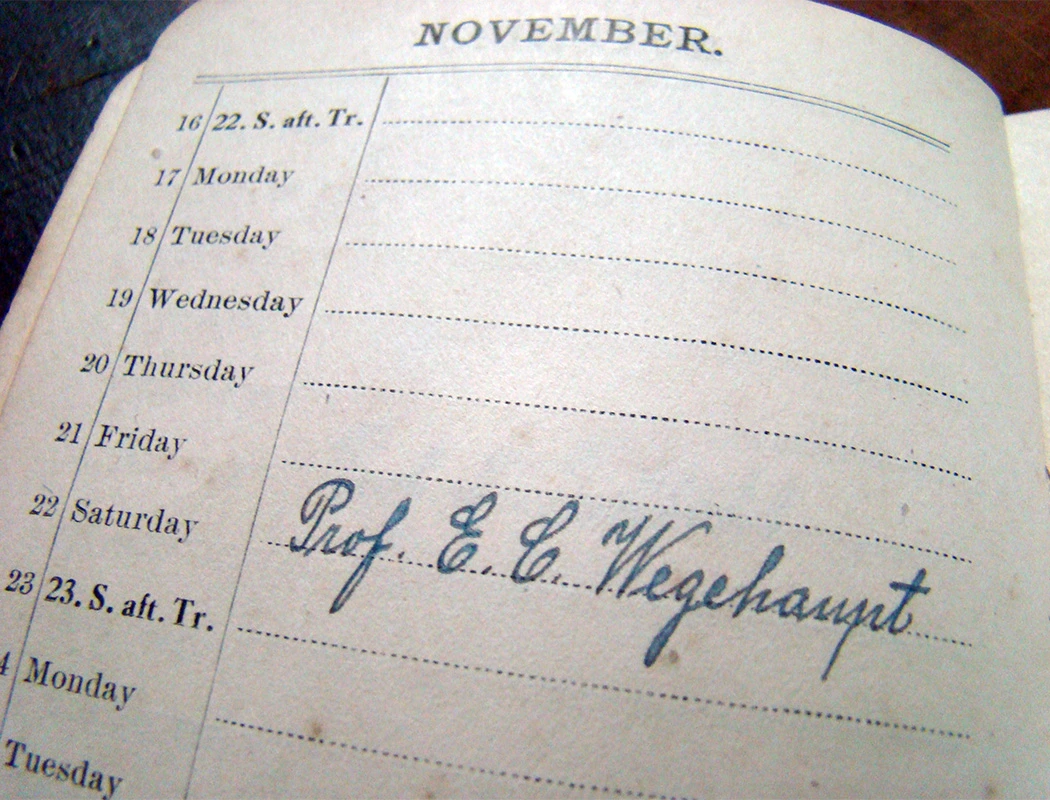 NOVEMBER.
16 22. S. aft. Tr.
17 Monday
18 Tuesday
19 Wednesday
20 Thursday
21 Friday
22 Saturday Prof. E. C. Wegehaupt
23 23. S. aft. Tr.
4 Monday
Tuesday